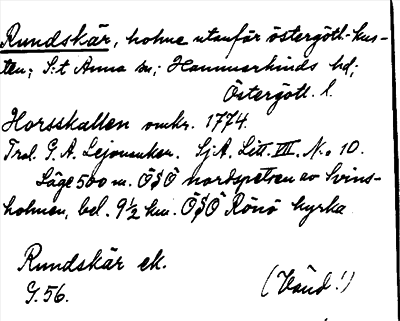 Rundskär, holme utanför östergötl.-kus-
ten; S:t Anna sn; Hammarkinds hd;
Östergötl. l.
Horsskallen omkr. 1774.
Trol. G. A. Lejonanker. SjA. Litt. VII, No 10.
Läge 500 m. ÖSÖ nordspetsen av Svins-
holmen, bel. 9½ km. ÖSÖ Rönö kyrka
Rundskär ek.
G. 56.
(Vänd!)